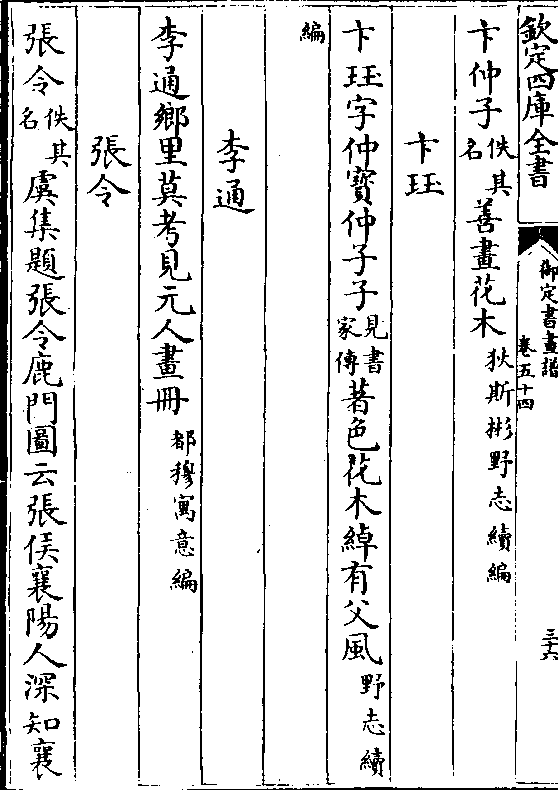 欽定四庫全書
御定書畫譜
卷五十四
三十六
卞仲子佚其名善畫花木狄斯彬野志續編
卞珏
卞珏字仲寳仲子子見書家傳著色花木綽有父風野志續
編
李通
李通鄉里莫考見元人畫冊都穆寓意編
張令
張令佚其名虞集題張令鹿門圖云張侯襄陽人深知襄